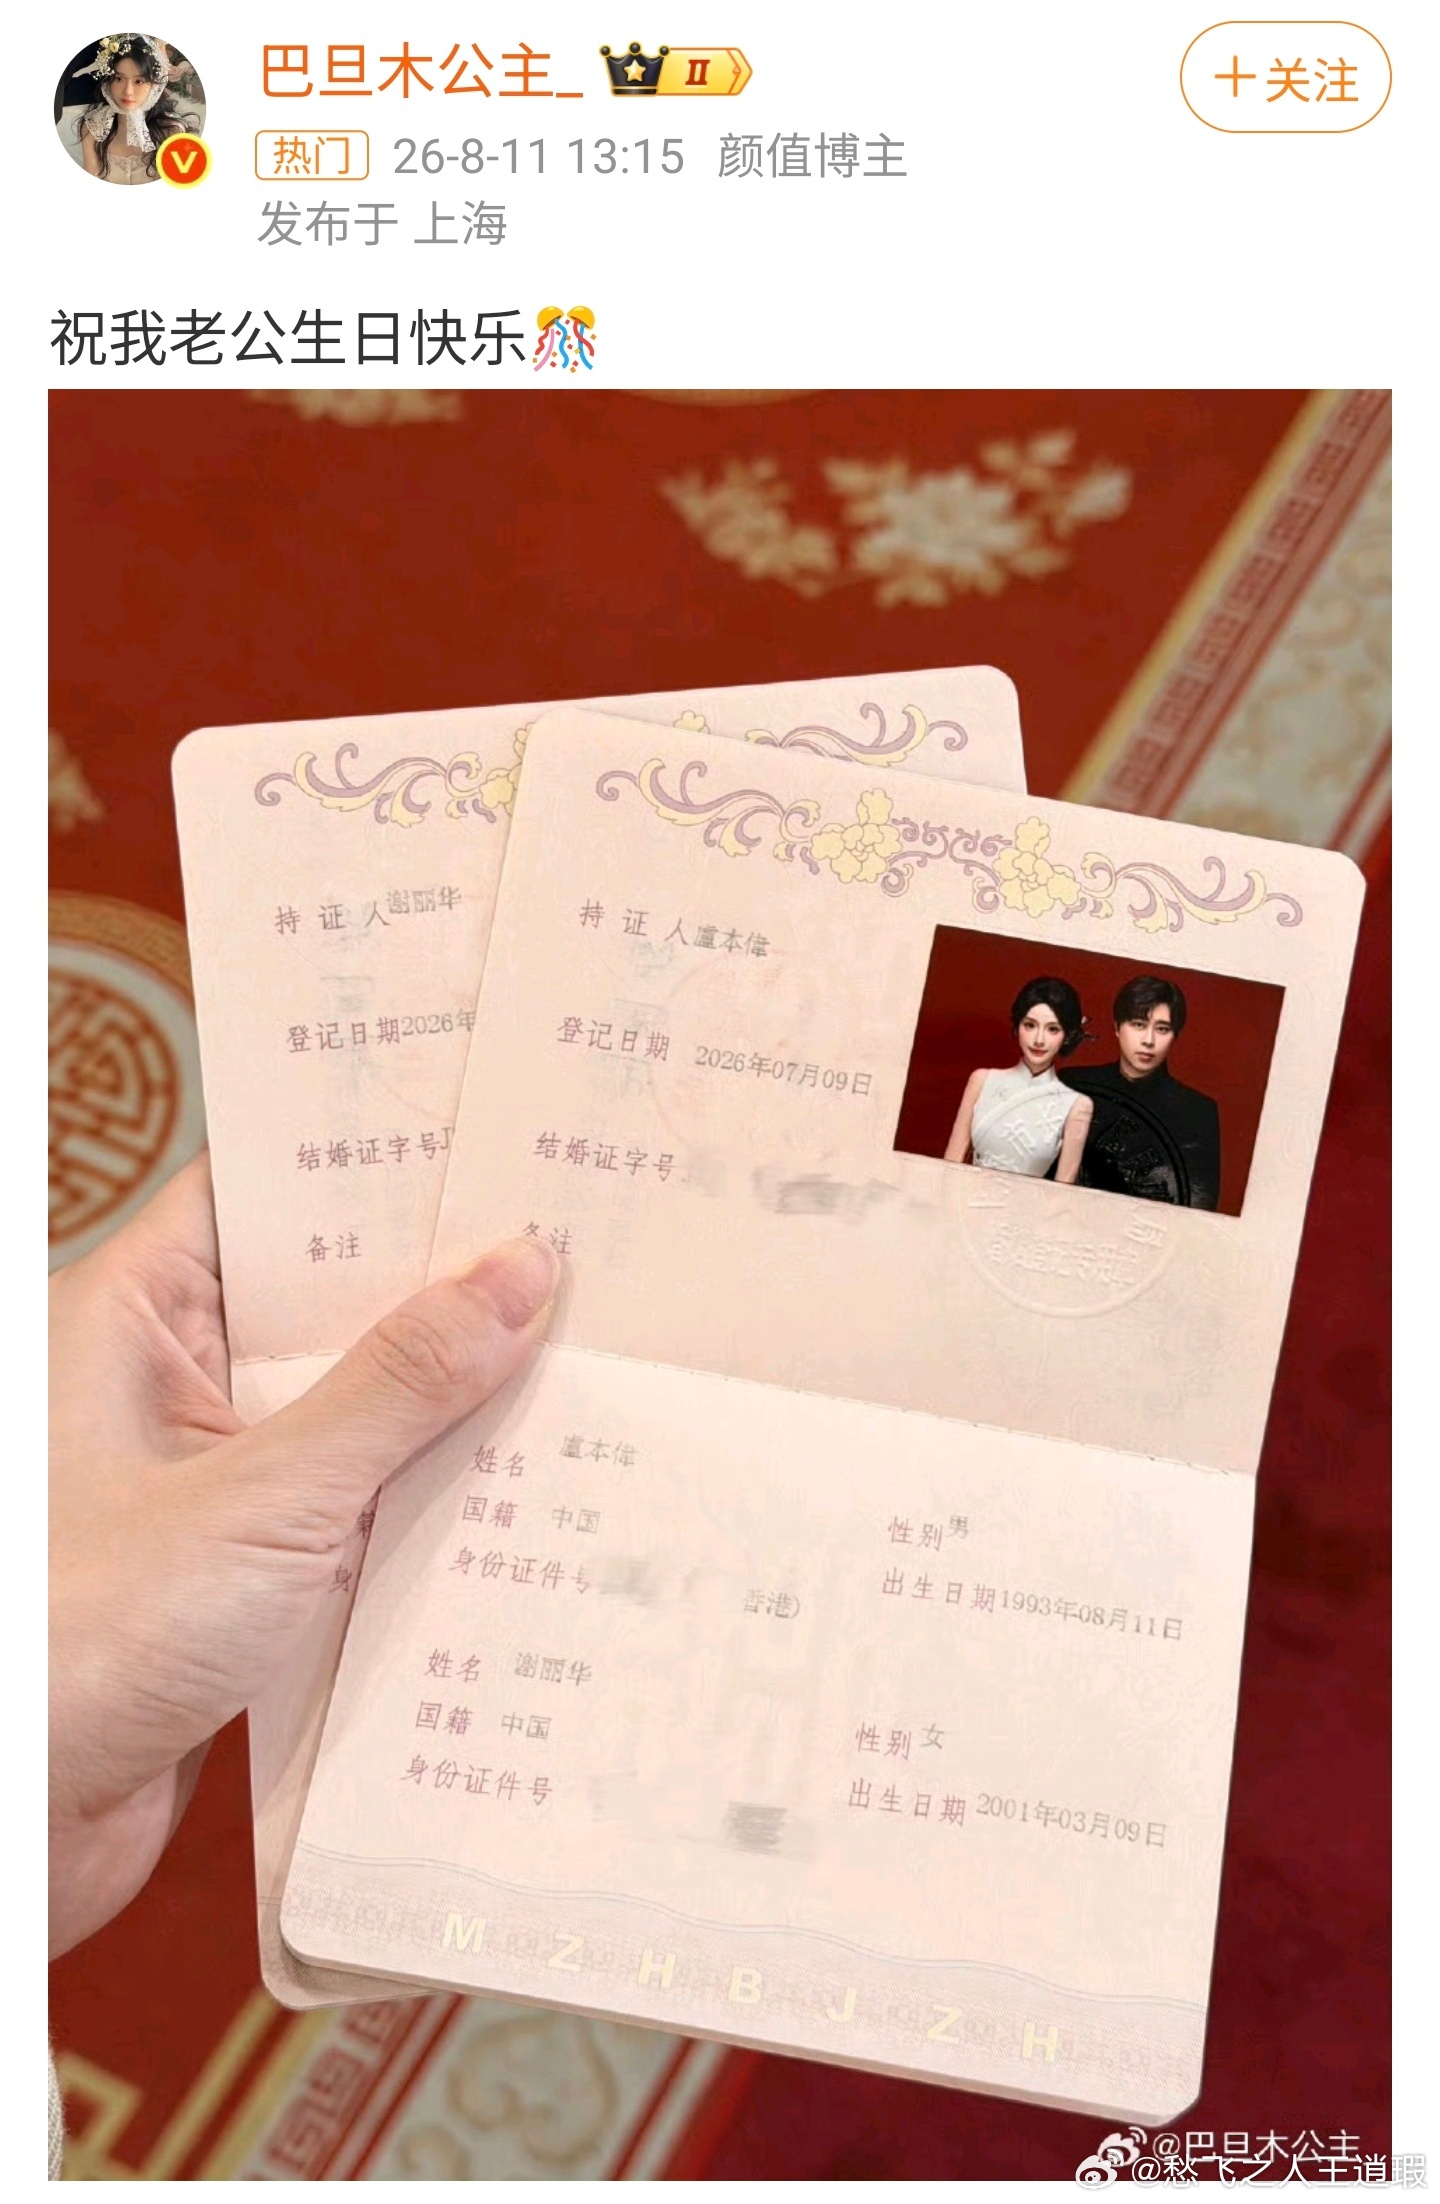 巴旦木公主_ II
+关注
热门 26-8-11 13:15 颜值博主
发布于 上海
祝我老公生日快乐
持证人谢丽华
登记日期2026年
结婚证字号J
备注
持证人盧本偉
登记日期 2026年07月09日
结婚证字号
备注
姓名 盧本偉
国籍 中国
性别男
身份证件号
香港)
出生日期1993年08月11日
姓名 谢丽华
国籍 中国
性别女
身份证件号
出生日期2001年03月09日
籍
身
M Z H B J Z H
@巴旦木公主
@愁飞之人王逍瑕